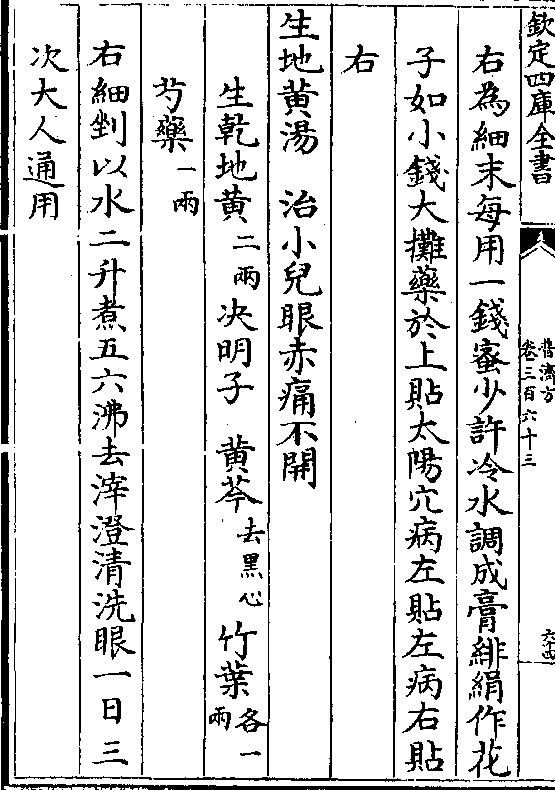 欽定四庫全書
普濟方
卷三百六十三
右為細末每用一錢蜜少許冷水調成膏緋絹作花
子如小錢大攤藥於上貼太陽穴病左貼左病右貼
右
生地黄湯　治小兒眼赤痛不開
生乾地黄二兩决明子　黄芩去黑心竹葉各一兩
芍藥一兩
右細剉以水二升煮五六沸去滓澄清洗眼一日三
次大人通用